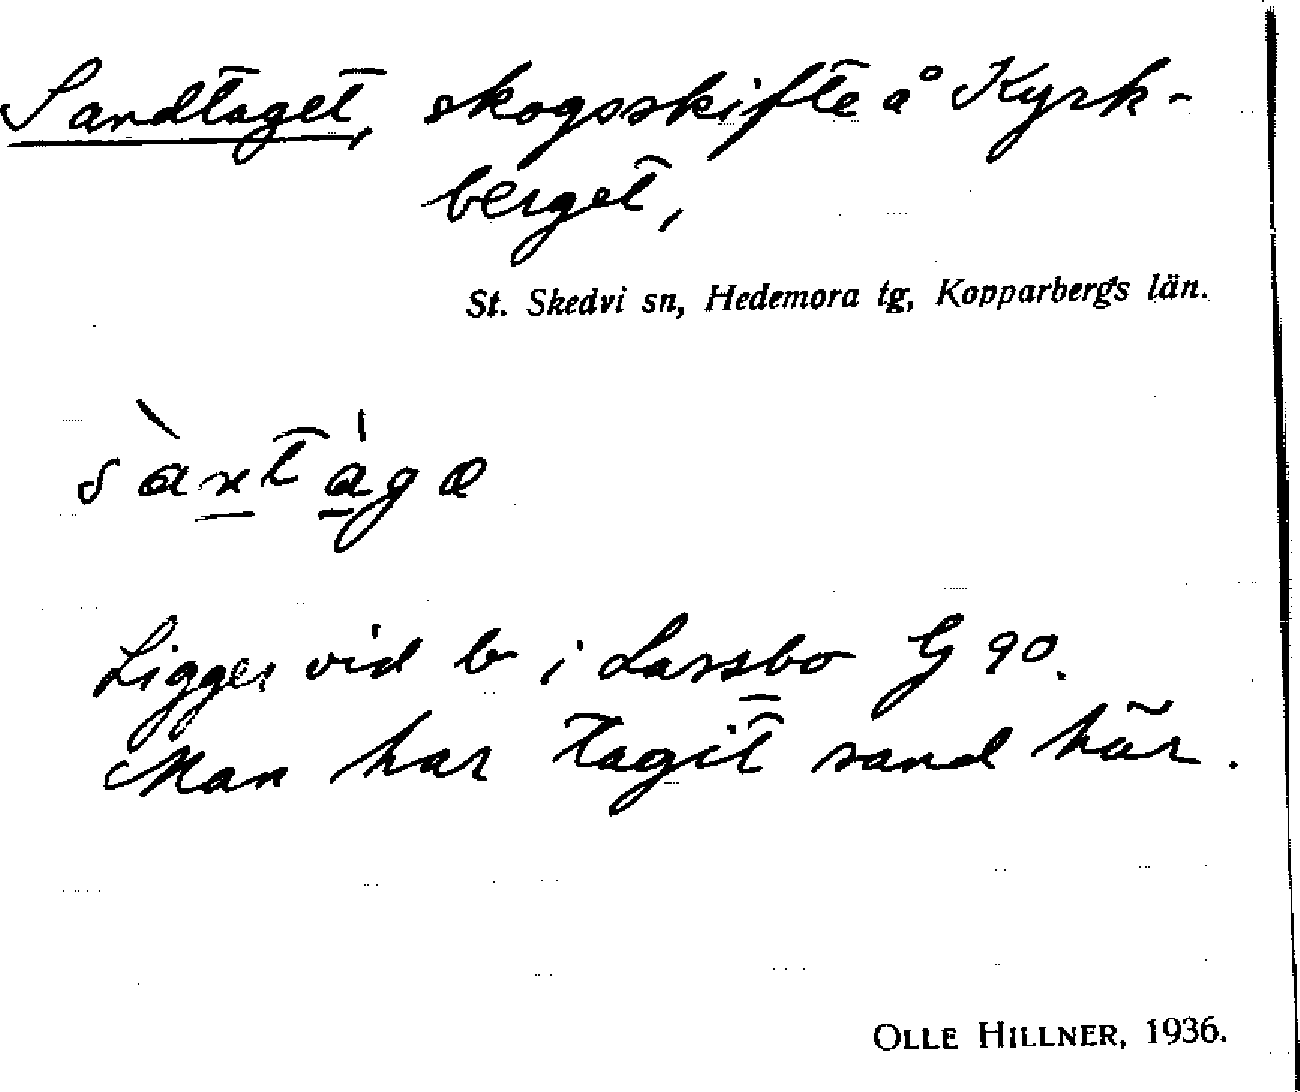 Sandtaget, skogsskifte å Kyrk-
berget,
St. Skedvi sn, Hedemora tg, Kopparbergs län.
sàntágæ
Ligger vid b i Larsbo G 90.
Man har tagit sand här.
OLLE HILLNER, 1936.